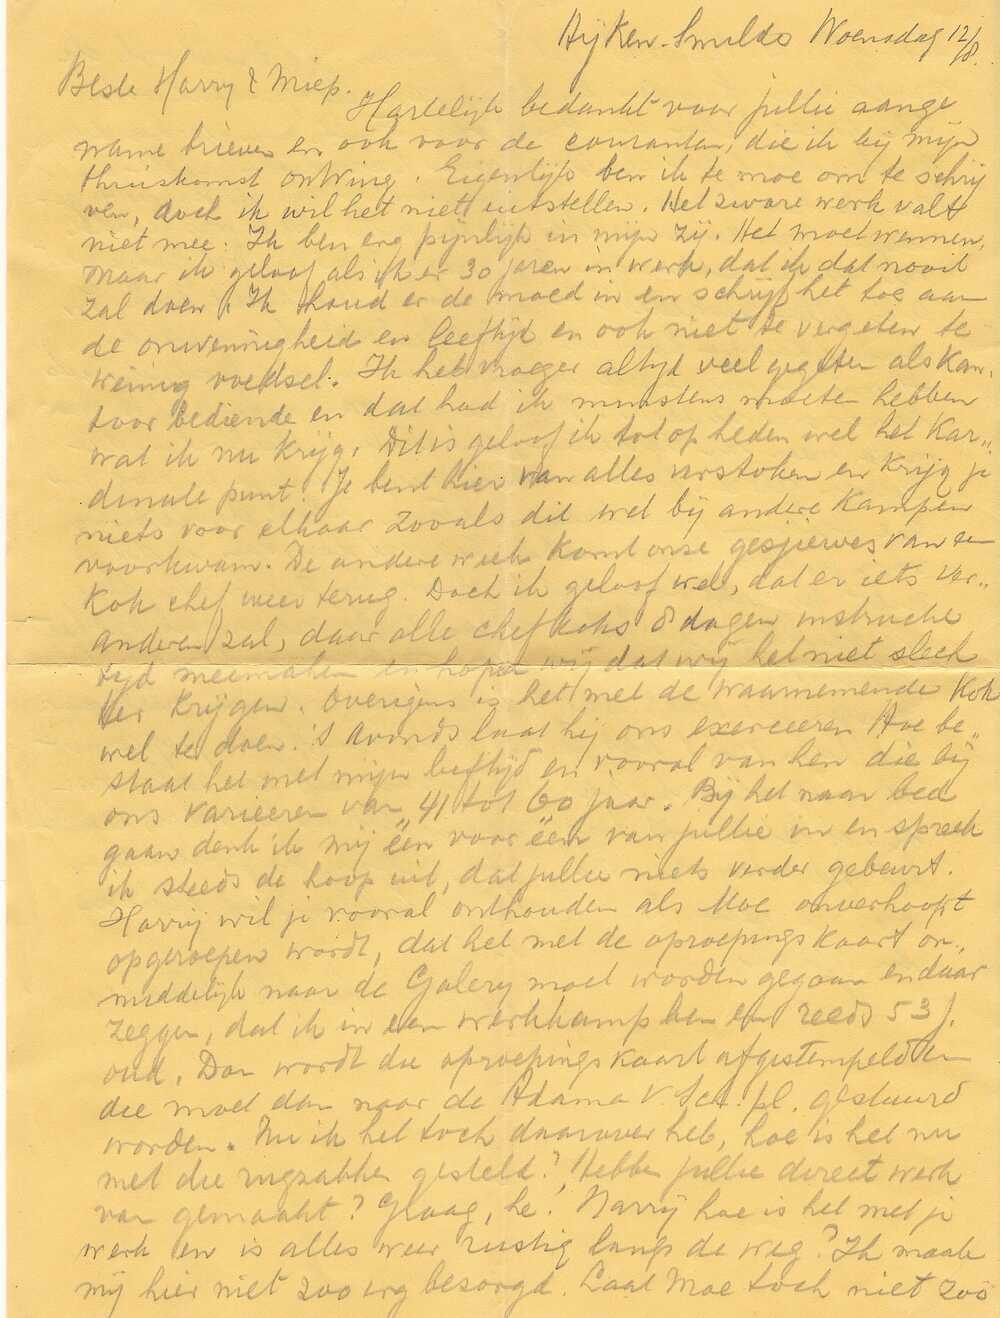 Hijken-Smilde Woensdag 12/8.
Beste Harry & Miep.
Hartelijk bedankt voor jullie aange
name brieven en ook voor de couranten, die ik bij mijn
thuiskomst ontving. Eigenlijk ben ik te moe om te schrij
ven, doch ik wil het niet uitstellen. Het zware werk valt
niet mee. Ik ben erg pijnlijk in mijn zij. Het moet wennen,
maar ik geloof als ik er 30 jaren in werk, dat ik dat nooit
zal doen. Ik houd er de moed in en schrijf het toe aan
de onwennigheid en leeftijd en ook niet te vergeten te
weinig voedsel. Ik heb vroeger altijd veel gegeten als kan„
toor bediende en dat had ik minstens moeten hebben
wat ik nu krijg. Dit is geloof ik tot op heden wel het Kar„
dinale punt. Je bent hier van alles verstoken en krijg je
niets voor elkaar zooals dit wel bij andere kampen
voorkwam. De andere week komt onze gesjiewes van een
Kok chef weer terug. Doch ik geloof wel, dat er iets ver„
anderen zal, daar alle chef koks 8 dagen instructie
tijd meemaken en hopen wij dat wij het niet slech
ter krijgen. Overigens is het met de waarnemende Kok
wel te doen. 's Avonds laat hij ons exerceeren Hoe be„
staat het met mijn leeftijd en vooral van hen die bij
ons varieeren van 41 tot 60 jaar. Bij het naar bed
gaan denk ik mij één voor één van jullie in en spreek
ik steeds de hoop uit, dat jullie niets verder gebeurt.
Harry wil je vooral onthouden als Moe onverhoopt
opgeroepen wordt, dat het met de oproepingskaart on„
middelijk naar de Galery moet worden gegaan en daar
zeggen, dat ik in een werkkamp ben en reeds 53 j.
oud. Dan wordt die oproepingskaart afgestempeld en
die moet dan naar de Adama v. Sch. pl. gestuurd
worden. Nu ik het toch daarover heb, hoe is het nu
met die rugzakken gesteld? Hebben jullie direct werk
van gemaakt? Graag, hè! Harry hoe is het met je
werk en is alles weer rustig langs de weg? Ik maak
mij hier niet zoo erg bezorgd. Laat Moe toch niet zoo